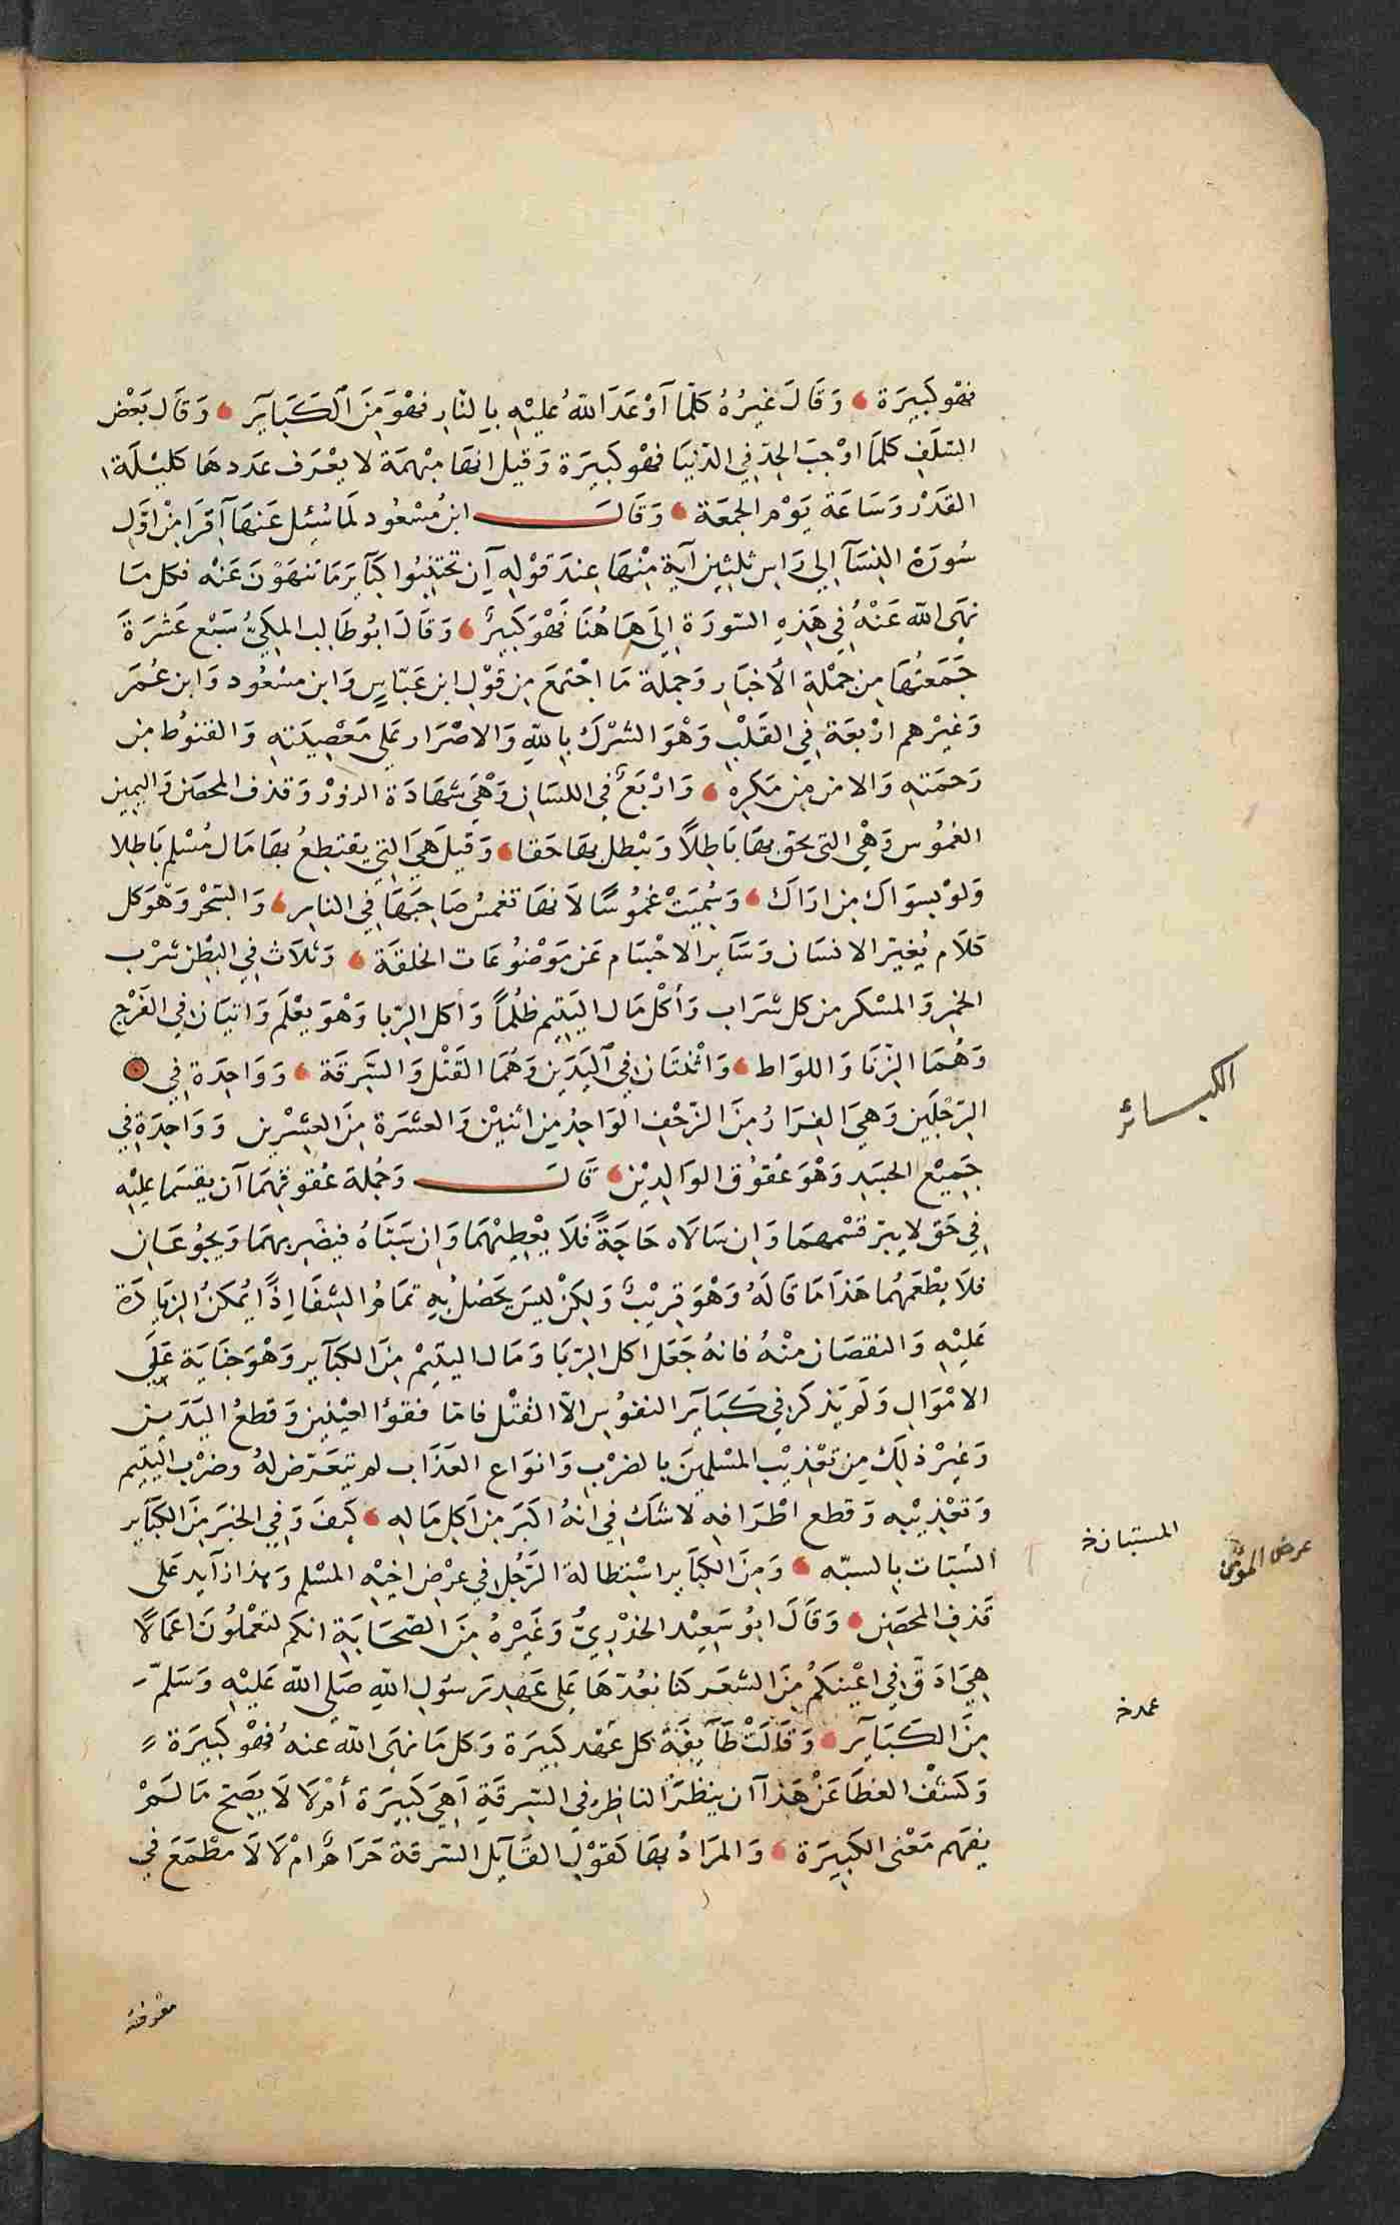 فهو كبيرة وَقَالَ غيرُهُ كلّما آوْعَدَ اللهُ عليْهِ بِالنّارِ فهْوَ مِنَ الكَبَايَر وَقَال بَعْض
السّلَفِ كلمَا اوْجَبَ الحدّ فِي الدّنيَا فهْو كبيرَة وَقيل انهَا مبْهمَة لا يعْرَف عدَدهَا كليْلَة
القدَرْ وَسَاعَة يَوْم الجمعَة وَقَالـَ ابن مسْعُود لمَا سُئِل عَنهَا آقرَا مِنْ اوّلِ
سُورَة النِسَآ اِلي رَاسِ ثلثين آية مِنْهَا عِندَ قوْلهِ آن تجتنبُوا كبَآيرَ مَا تنهَوْنَ عَنْه فكل مَا
نهَى الله عَنْهُ فِي هَذِهِ السّورَة اِلَى هَاهُنَا فَهْوَ كَبيرٌ وَقَالَ ابُو طَالِب المكيّ سَبْع عَشْرَةَ
جَمَعتُهَا مِن جمْلةِ الأخبَارِ وَجملَة مَا اجْتمعَ مِن قوْلِ ابن عَبّاسٍ وَابن مسْعُود وَابن عُمَر
وَغيْرهم ارْبعَة فِي القَلْبِ وَهْوَ الشرْك بِاللهِ وَالاصْرَار عَلى مَعْصِيَتهِ وَالقنوُط مِن
رَحمَتهِ وَالامن مِن مَكرِهِ وَارْبَعٌ فِي اللسَانِ وَهْيَ شهَادَة الزورْ وَقذف المحصَن وَاليَمِين
الغمُوس وَهْي التى يحق بهَا بَاطِلاً وَيبْطل بهَا حَقا وَقيلَ هيَ التِي يقتطِعُ بهَا مَال مُسْلم بَاطِلا
وَلوْ بسوَاك مِن ارَاك وَسُمِّيَتْ غمُوسًا لاَنهَا تغمسُ صَاحِبَهَا في النارِ وَالسّحْر وَهْوَ كل
كلَام يُغيّر الانسَان وَسَآير الاجْسَام عَن مَوْضوُعَات الخلقَة وَثلاَث فِي البَطن شرْب
الخمِر وَالمسْكر من كل شرَاب وَأكْل مَال اليَتِيم ظلُماً وَأكل الرّبا وَهْوَ يعْلَم وَاثنَان فِي الفَرْج
وَهُمَا الزّنَا وَاللوَاط وَاثْنتَان فِي اليَدَين وَهُمَا القَتْل وَالسَّرقَة وَوَاحِدَة فِي
الرّجْلَين وَهِيَ الفِرَارُ مِنَ الزّحْفِ الوَاحِدُ مِن اثنيْن وَالعشرَة مِنَ العِشْرِين وَوَاحِدَة فِي
جَميْع الجسَدِ وَهْوَ عُقوُق الوَالِديْن قَالـَ وَجُملة عُقوُقهمَا آن يقسمَا عليْه
فِي حَق لا يبرّ قسْمهمَا وَان سَالَاه حَاجَةً فلَا يعْطِيْهمَا وَان سَبَّاهُ فيضْربهمَا وَيجوُعَانِ
فلَا يطعَمهُما هَذا مَا قَالَهُ وَهْوَ قريْبٌ وَلكِنْ ليسَ يَحصُلُ بهِ تمَامُ الشفَا اِذَا يُمكنُ الزيَادَة
عَليْهِ وَالنقصَان منْهُ فانهُ جَعَل اكل الرّبَا وَمَال اليتيِمْ مِنَ الكبَآير وَهْوَ جنَايَة عَلَى
الامْوَالِ وَلَم يَذكر فِي كَبَآيَر النفوُسِ الاّ القتْل فامّا فقؤُ العيْنين وَقطعُ اليَدَين
وَغيْر ذلِك مِن تعْذيْب المسْلمِينَ بِالضربِ وَانوَاع العَذَاب لم يتعَرّض لهُ وضرْب اليَتِيم
وَتعْذيْبه وَقطع اطْرَافهِ لا شك فِي انهُ اكبَر مِن اكِل مَالهِ كيفَ وَفِي الخبَر مِنَ الكبَآير
السَّبتات بِالسبّه وَمِنَ الكبَآير اسْتِطَالة الرّجُل فِي عِرْض اخيْهِ المسْلم وَهذا زآيد عَلى
قَذفِ المحصَن وَقَالَ ابُو سَعِيْد الخدْرِيُّ وَغَيْرُهُ مِنَ الصّحَابَةِ انكم لتعْمَلُونَ اعْمَالاً
هِيَ ادَقّ فِي اعْينكُمْ مِنَ الشعَر كنا نعُدّهَا عَلى عَهْدِ رَسُولِ اللهِ صَلى الله عَليْهِ وَسَلمّ
مِنَ الكَبَآير وَقَالَتْ طَآيفَةٌ كل عَمْد كَبيرَة وَكل مَا نهَى الله عنهُ فهْو كَبيرَة
وَكشفْ الغطَا عَنْ هَذَا آن ينظرَ الناظِر في السّرقَةِ آهِيَ كَبيرَة أمْ لَا لاَ يَصِحّ مَا لَمْ
يفهَم مَعْنى الكَبِيرَة وَالمرَادُ بهَا كقوْلِ القَآيل السّرقَة حَرَامٌ امْ لاَ لَا مطْمَعَ في
الكبائر
المستبان خ
عرض المؤمن
عمد خ